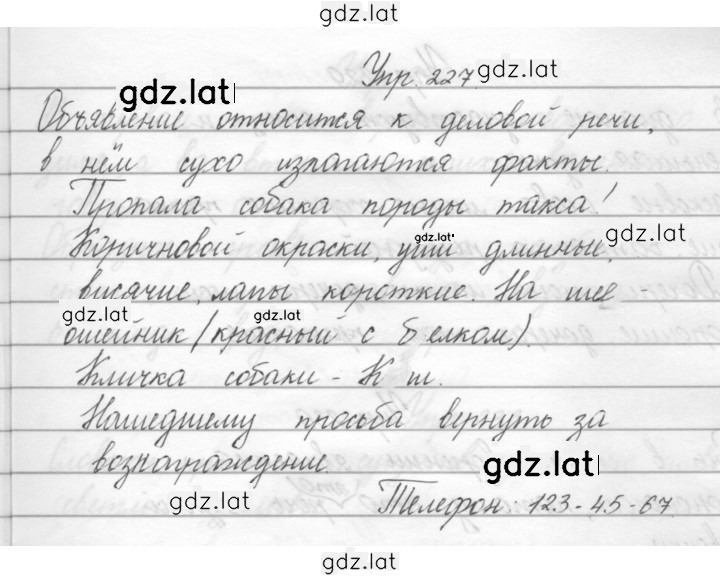 gdz.lat
Упр. 227 gdz.lat
gdz.lat
Объявление относится к деловой речи,
в нём сухо излагаются факты.
Пропала собака породы такса!
gdz.lat gdz.lat
Коричновой окраски, уши длинные,
висячие, лапы короткие. На шее -
gdz.lat gdz.lat
ошейник (красный с белком).
Кличка собаки - К ш.
Нашедшему просьба вернуть за
вознаграждение.
gdz.lat gdz.lat
Телефон: 123-45-67
gdz.lat